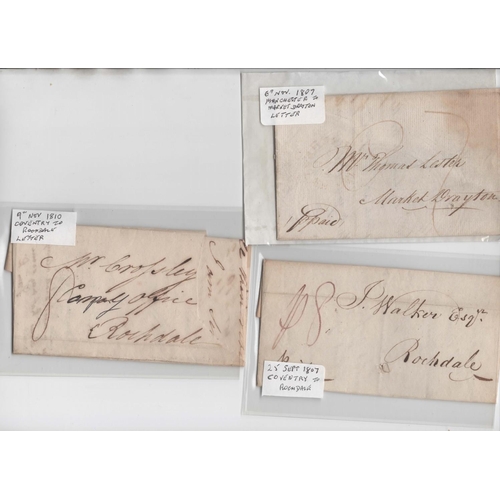 6th NOV. 1807
MANCHESTER TO
MARKET DRAYTON
LETTER
Mr Thomas Lester
Market Drayton
paid
9th NOV 1810
COVENTRY TO
ROCHDALE
LETTER
Mr. Crossley
8 Canal Office
Rochdale
J. Walker Esqr.
Rochdale
25 SEPT 1807
COVENTRY TO
ROCHDALE